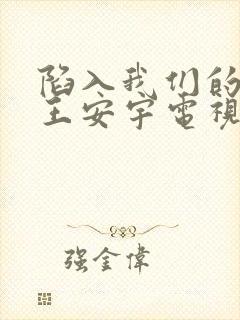 陷入我们的
王安宇電視
强金偉